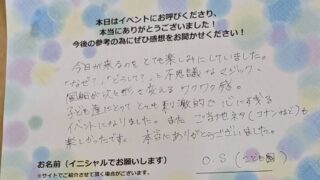 本日はイベントにお呼びくださり、
本当にありがとうございました！
今後の参考の為にぜひ感想をお聞かせください！
今日が来るのをとても楽しみにしていました。
"なぜ？""どうして？"と不思議なマジック、
風船が次々形を変えるワクワク感。
子ども達にとってとても刺激的で心に残る
イベントになりました。また ご当地ネタ(コナンなど)も
楽しかったです。本当にありがとうございました。
お名前（イニシャルでお願いします）
※サイトでご紹介させて頂く場合がございます。
O.S (こども園)